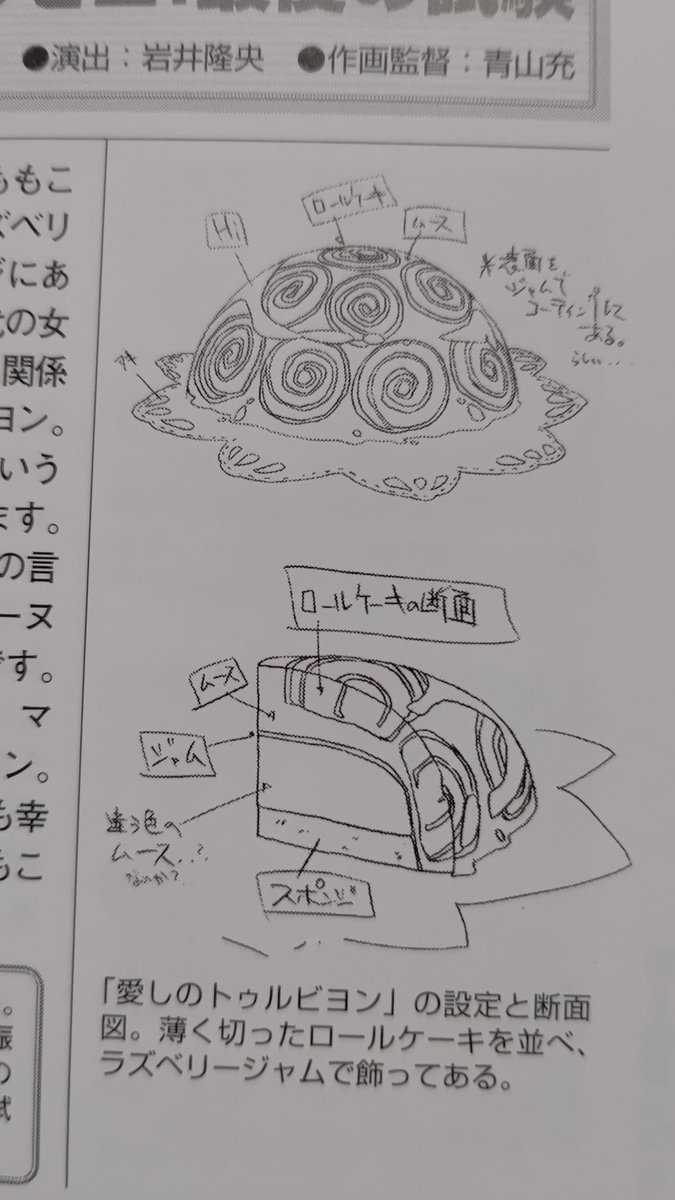 ●演出：岩井隆央　●作画監督：青山充
ももこ
ズベリ
ジにあ
代の女
関係
ヨン。
いう
ます。
の言
ーヌ
です。
マ
ン。
も幸
もこ
Hi
ロールケーキ
ムース
※表面を
ジャムで
コーティングして
ある。
らしい…
アキ
ロールケーキの断面
ムース
ジャム
違う色の
ムース..?
なのか?
スポンジ
「愛しのトゥルビヨン」の設定と断面
図。薄く切ったロールケーキを並べ、
ラズベリージャムで飾ってある。
。
振
の
試